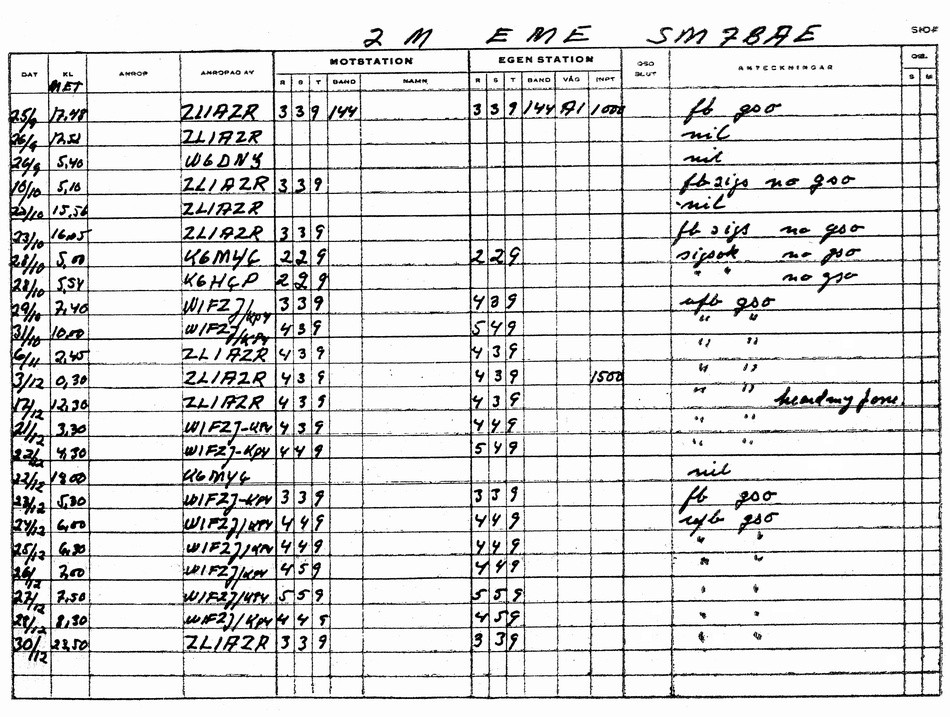 2 M EME SM7BAE SIDA
MOTSTATION EGEN STATION QSO SLUT ANTECKNINGAR QSL
DAT KL ANROP ANROPAD AV R S T BAND NAMN R S T BAND VÅG INPT S M
MET
25/9 17,48 ZL1AZR 3 3 9 144 3 3 9 144 A1 1000 fb qso
26/9 17,51 ZL1AZR nil
26/9 5,40 W6DNG nil
10/10 5,10 ZL1AZR 3 3 9 fb sigs no qso
22/10 15,56 ZL1AZR nil
23/10 16,05 ZL1AZR 3 3 9 fb sigs no qso
28/10 5,00 K6MYC 2 2 9 2 2 9 sigs ok no qso
28/10 5,54 K6HCP 2 2 9 " " no qso
29/10 7,40 W1FZJ/KP4 3 3 9 4 3 9 ufb qso
31/10 10,00 W1FZJ/KP4 4 3 9 5 4 9 " "
6/11 2,45 ZL1AZR 4 3 9 4 3 9 " "
3/12 0,30 ZL1AZR 4 3 9 4 3 9 1500 " "
17/12 12,30 ZL1AZR 4 3 9 4 3 9 " " heard my fone.
21/12 3,30 W1FZJ-KP4 4 3 9 4 4 9 " "
22/12 4,30 W1FZJ-KP4 4 4 9 5 4 9 " "
22/12 18,00 K6MYC nil
23/12 5,30 W1FZJ-KP4 3 3 9 3 3 9 fb qso
24/12 6,00 W1FZJ/KP4 4 4 9 4 4 9 ufb qso
25/12 6,30 W1FZJ/KP4 4 4 9 4 4 9 " "
26/12 7,00 W1FZJ/KP4 4 5 9 4 4 9 " "
27/12 7,50 W1FZJ/KP4 5 5 9 5 5 9 " "
28/12 8,30 W1FZJ/KP4 4 4 5 4 5 9 " "
30/12 23,50 ZL1AZR 3 3 9 3 3 9 " "